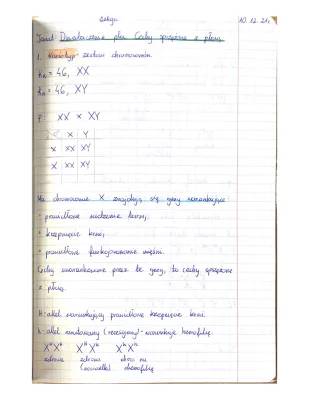 Lekcja 10.12.21r.
Temat: Dziedziczenie płci. Cechy sprzężone z płcią.
1. Kariotyp - zestaw chromosomów.
= 46, XX
= 46, XY
P: XX × XY
X Y
X XX XY
X XX XY
Na chromosomie X znajdują się geny warunkujące:
- prawidłowe widzenie barw,
- krzepnięcie krwi,
- prawidłowe funkcjonowanie mięśni.
Cechy warunkowane przez te geny, to cechy sprzężone
z płcią.
H - allel warunkujący prawidłowe krzepnięcie krwi.
h - allel (recesywny) - warunkuje hemofilię.
Xᴴ Xᴴ Xᴴ Xʰ Xʰ Xʰ
zdrowa zdrowa chora na
(nosicielka) hemofilię